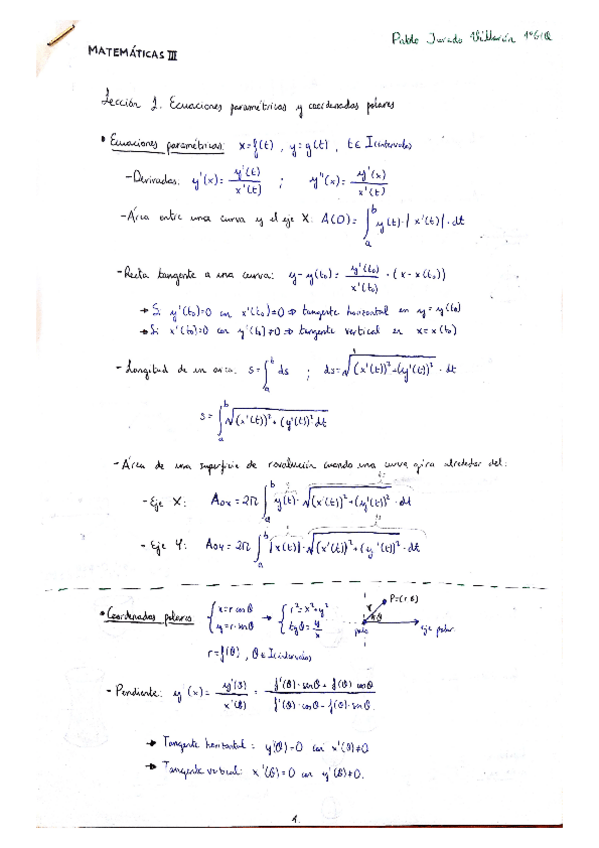 Pablo Jurado Villarón 1º GIQ
MATEMÁTICAS III
Lección 1. Ecuaciones paramétricas y coordenadas polares
• Ecuaciones paramétricas: x=f(t), y=g(t), t∈I(intervalo)
- Derivadas: y'(x)= y'(t)/x'(t) ; y''(x)= y'(x)/x'(t)
- Área entre una curva y el eje X: A(D)= ∫_a^b y(t)·|x'(t)|·dt
- Recta tangente a una curva: y-y(t₀)= y'(t₀)/x'(t₀) · (x-x(t₀))
→ Si y'(t₀)=0 con x'(t₀)≠0 ⇒ tangente horizontal en y=y(t₀)
→ Si x'(t₀)=0 con y'(t₀)≠0 ⇒ tangente vertical en x=x(t₀)
- Longitud de un arco: s=∫_a^b ds ; ds=√((x'(t))²+(y'(t))²)·dt
s=∫_a^b √((x'(t))²+(y'(t))²) dt
- Área de una superficie de revolución cuando una curva gira alrededor del:
- Eje X: A_OX=2π ∫_a^b y(t)·√((x'(t))²+(y'(t))²)·dt
- Eje Y: A_OY=2π ∫_a^b |x(t)|·√((x'(t))²+(y'(t))²)·dt
• Coordenadas polares { x=r cosθ → { r²=x²+y² P=(r,θ)
{ y=r·senθ { tgθ=y/x r θ polo eje polar
r=f(θ), θ∈I(intervalo)
- Pendiente: y'(x)= y'(θ)/x'(θ) = f'(θ)·senθ+f(θ) cosθ / f'(θ)·cosθ-f(θ)·senθ.
→ Tangente horizontal: y'(θ)=0 con x'(θ)≠0
→ Tangente vertical: x'(θ)=0 con y'(θ)≠0.
1.